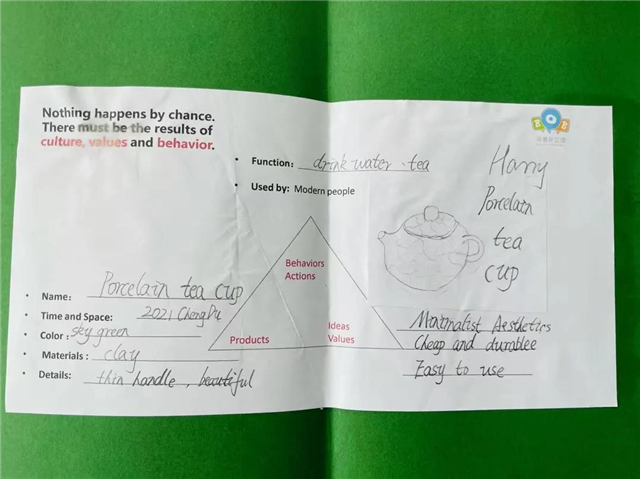 Nothing happens by chance.
There must be the results of
culture, values and behavior.
• Function: drink water . tea
• Used by: Modern people
Harry
Porcelain
tea
cup
Behaviors
Actions
Products
Ideas
Values
• Name: Porcelain tea cup
• Time and Space: 2021 ChengDu
• Color: sky green
• Materials: clay
• Details: thin handle, beautiful
Minimalist Aesthetics
Cheap and durablee
Easy to use